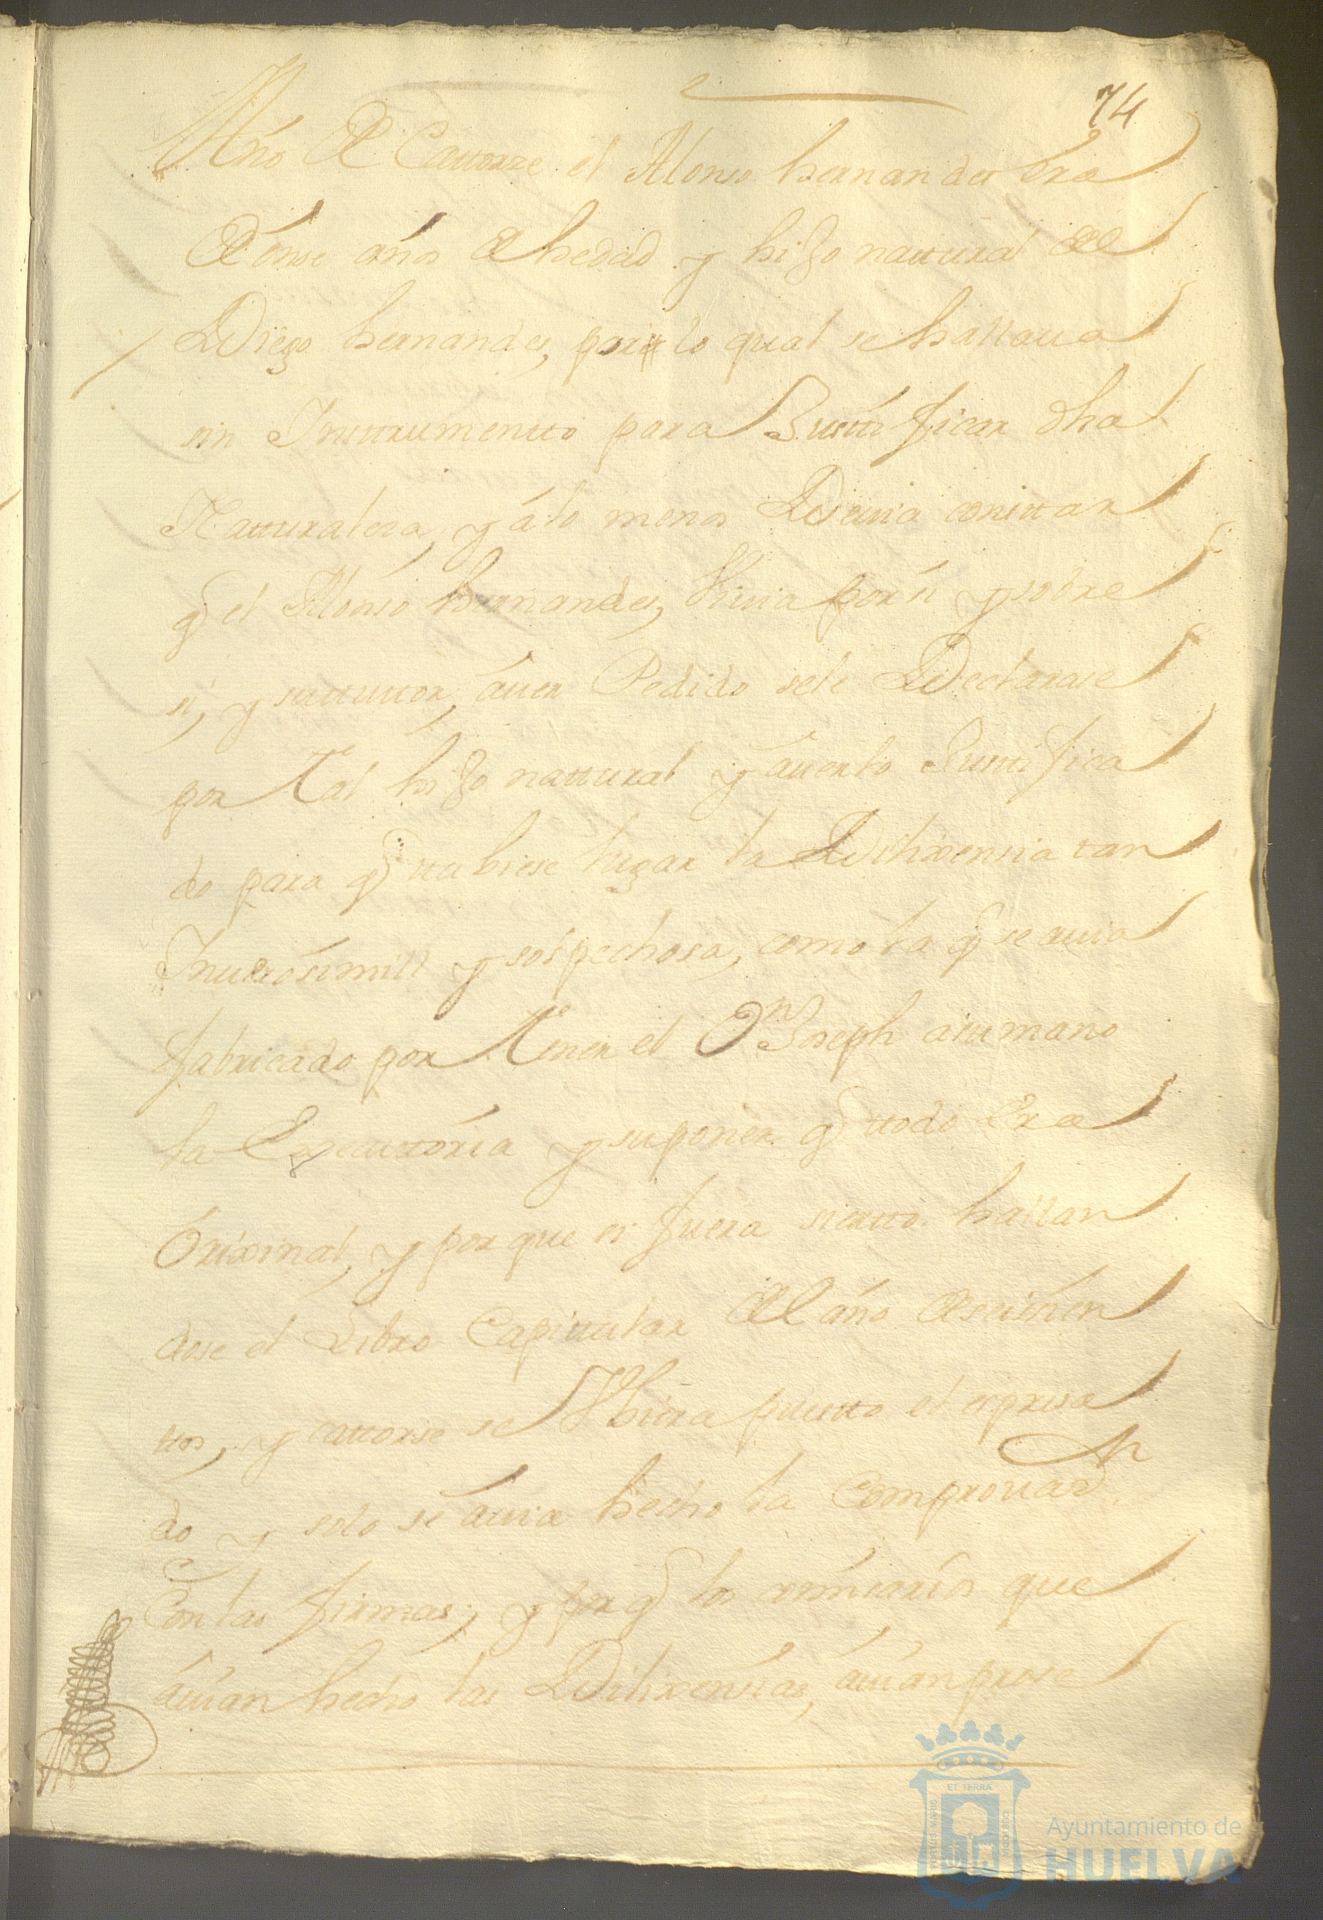 74
Año de Cattorze el Alonso hernandes era
de onse años de hedad y hijo nattural del
Diego hernandes, por lo qual se hallaua
sin Insttrumentto para Justtificar dha
Natturalesa, y álo menos Deuia consttar
q̃ el Alonso hernandes, Viuia por si y sobre
si, y su tuttor, áuer Pedido sele Declarase
por Tal hijo nattural y áuerlo Justtifica
do para q̃ ttubiese lugar la Dilixensia tan
Inuerosimill y sospechosa, como la q̃ se auia
fabricado por Tener el Dn Joseph asumano
la Executtória y suponer q̃ ttodo Era
Orixinal, y por que si fuera siertto hallan
dose el Libro Capittular del año de seisien
ttos, y cattorse se Vbiera puestto el expresa
do y solo se áuia hecho la Comprouaon
Con las firmas, y por q̃ los comisarios que
áuian hecho las Dilixensias, áuian prose
Ayuntamiento de
HUELVA
ET TERRA